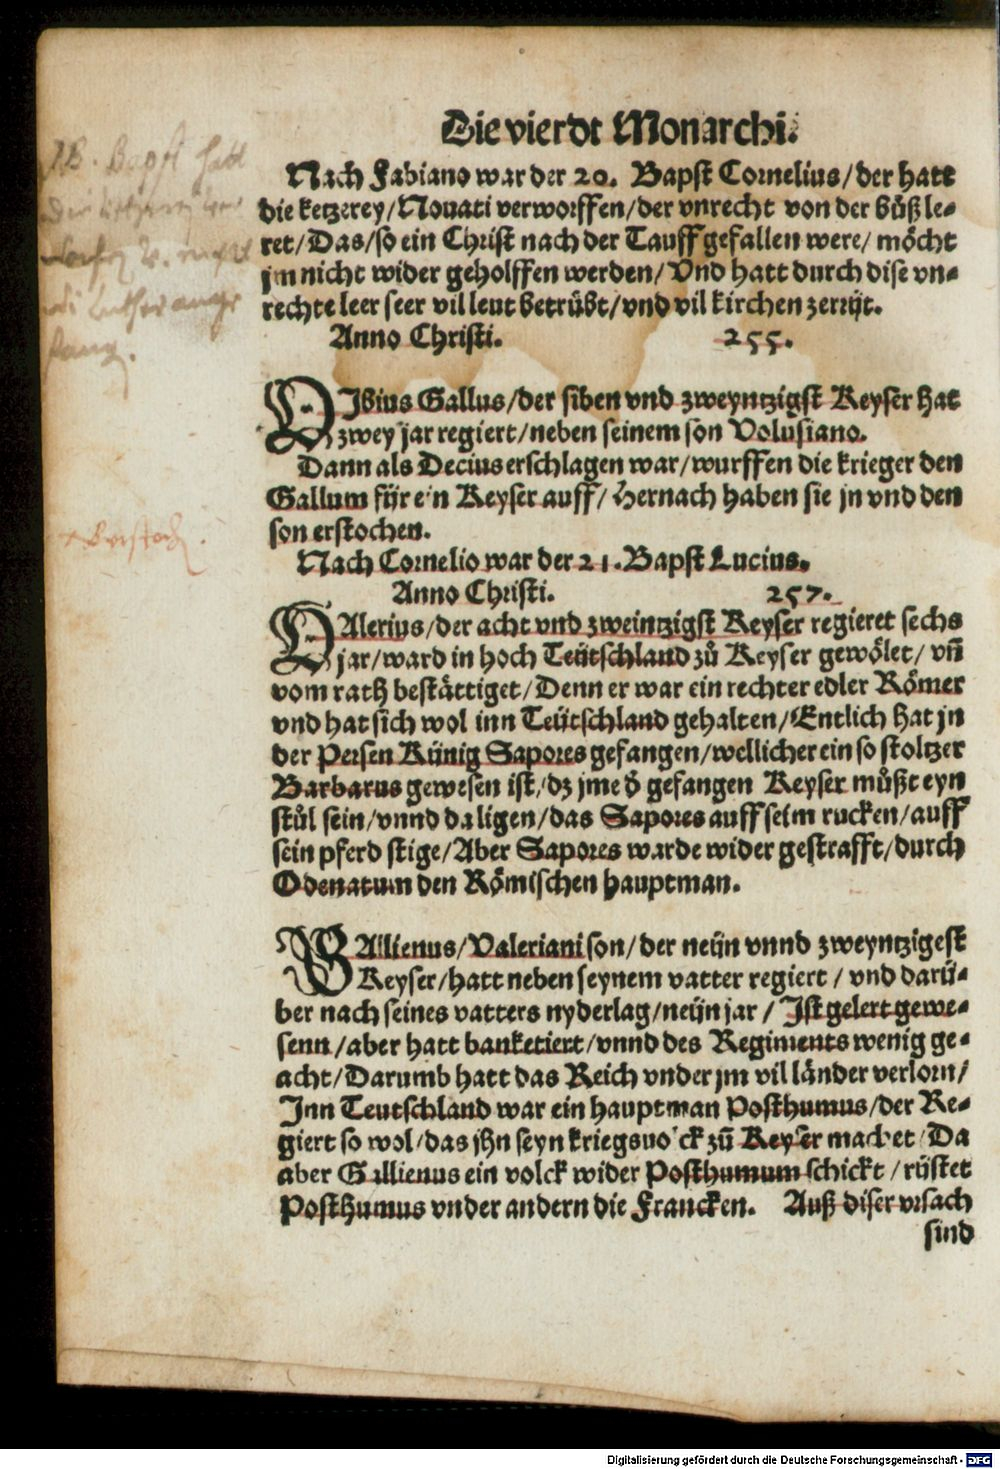 Die vierdt Monarchi.
Nach Fabiano war der 20. Bapst Cornelius/der hatt
die ketzerey/Nouati verworffen/der vnrecht von der bůß le-
ret/Das/so ein Christ nach der Tauff gefallen were/ möcht
jm nicht wider geholffen werden/Vnd hatt durch dise vn-
rechte leer seer vil leut betrübt/vnd vil kirchen zerrüt.
Anno Christi. 255.
VIbius Gallus/der siben vnd zweyntzigst Keyser hat
zwey jar regiert/neben seinem son Volusiano.
Dann als Decius erschlagen war/wurffen die krieger den
Gallum für ein Keyser auff/ Hernach haben sie jn vnd den
son erstochen.
Nach Cornelio war der 21. Bapst Lucius.
Anno Christi. 257.
VAlerius/der acht vnd zweintzigst Keyser regieret sechs
jar/ward in hoch Teütschland zů Keyser gewölet/ vñ
vom rath bestättiget/Denn er war ein rechter edler Römer
vnd hat sich wol inn Teütschland gehalten/Entlich hat jn
der Persen Künig Sapores gefangen/wellicher ein so stoltzer
Barbarus gewesen ist/dz jme d̕ gefangen Keyser můßt eyn
stůl sein/vnnd da ligen/das Sapores auff seim rucken/auff
sein pferd stige/Aber Sapores warde wider gestrafft/durch
Odenatum den Römischen hauptman.
GAllienus/Valeriani son/der neün vnnd zweyntzigest
Keyser/hatt neben seynem vatter regiert / vnd darü-
ber nach seines vatters nyderlag/neün jar / Ist gelert gewe-
senn/aber hatt banketiert/vnnd des Regiments wenig ge-
acht/Darumb hatt das Reich vnder jm vil länder verlorn/
Inn Teutschland war ein hauptman Posthumus/der Re-
giert so wol/das jhn seyn kriegsuolck zů Keyser machet/Da
aber Gallienus ein volck wider Posthumum schickt/rüstet
Posthumus vnder andern die Francken. Auß diser vrsach
sind
NB. Bapst hatt
Luther
Erstoch.
Digitalisierung gefördert durch die Deutsche Forschungsgemeinschaft - DFG